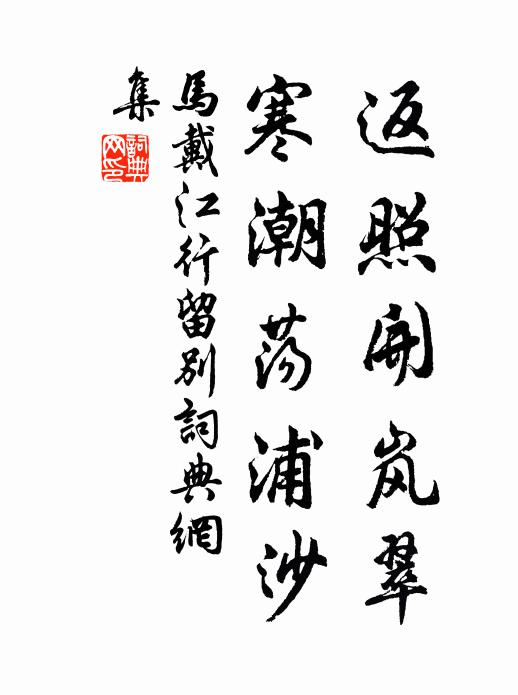 返照開岚翠
寒潮荡浦沙
馬戴江行留别詞典網
集
詞典
网印